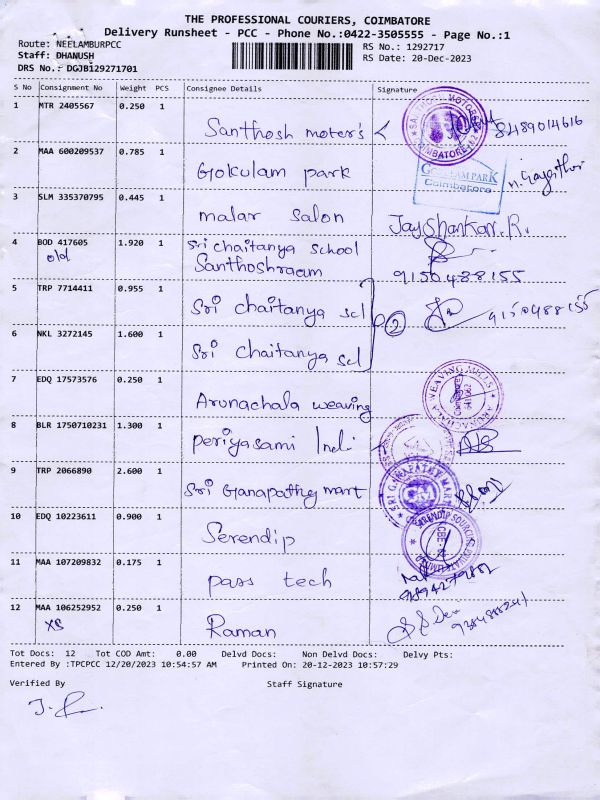 THE PROFESSIONAL COURIERS, COIMBATORE
Delivery Runsheet - PCC - Phone No.:0422-3505555 - Page No.:1
Route: NEELAMBURPCC RS No.: 1292717
Staff: DHANUSH RS Date: 20-Dec-2023
DRS No.: DGJB129271701
S No Consignment No Weight PCS Consignee Details Signature
1 MTR 2405567 0.250 1
Santhosh moter's 8489014616
SANTHOSH MOTORS
COIMBATORE
2 MAA 600209537 0.785 1
Gokulam park n. Gayathri
GOKULAM PARK
Coimbatore
3 SLM 335370795 0.445 1
malar salon Jayshankar. R.
4 BOD 417605 1.920 1 Sri chaitanya school
old Santhoshraam 9150488155
5 TRP 7714411 0.955 1
Sri chaitanya scl 2 9150488155
6 NKL 3272145 1.600 1
Sri chaitanya scl
7 EDQ 17573576 0.250 1
Arunachala weaving
ARUNACHALA WEAVING MILLS
8 BLR 1750710231 1.300 1
periyasami Indi
9 TRP 2066890 2.600 1
Sri Ganapathy mart
SRI GANAPATHY MART
10 EDQ 10223611 0.900 1
Serendip
SERENDIP SOURCING PRIVATE LIMITED
11 MAA 107209832 0.175 1
pass tech
12 MAA 106252952 0.250 1
XS Raman
Tot Docs: 12 Tot COD Amt: 0.00 Delvd Docs: Non Delvd Docs: Delvy Pts:
Entered By :TPCPCC 12/20/2023 10:54:57 AM Printed On: 20-12-2023 10:57:29
Verified By Staff Signature